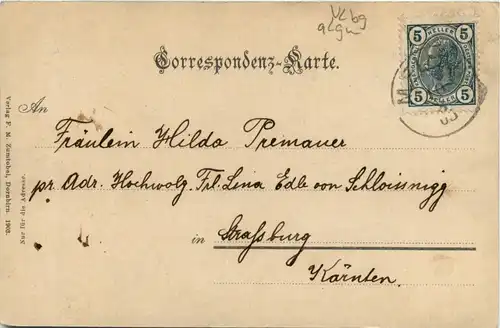 Vlbg
Correspondenz-Karte.
5 HELLER 5
5 5
An
Fräulein Hilda Premauer
pr. Adr. Hochwolg. Frl. Lina Edle von Schloissnigg
in Straßburg
Kärnten.
Verlag F. M. Zumtobel, Dornbirn. 1903.
Nur für die Adresse.